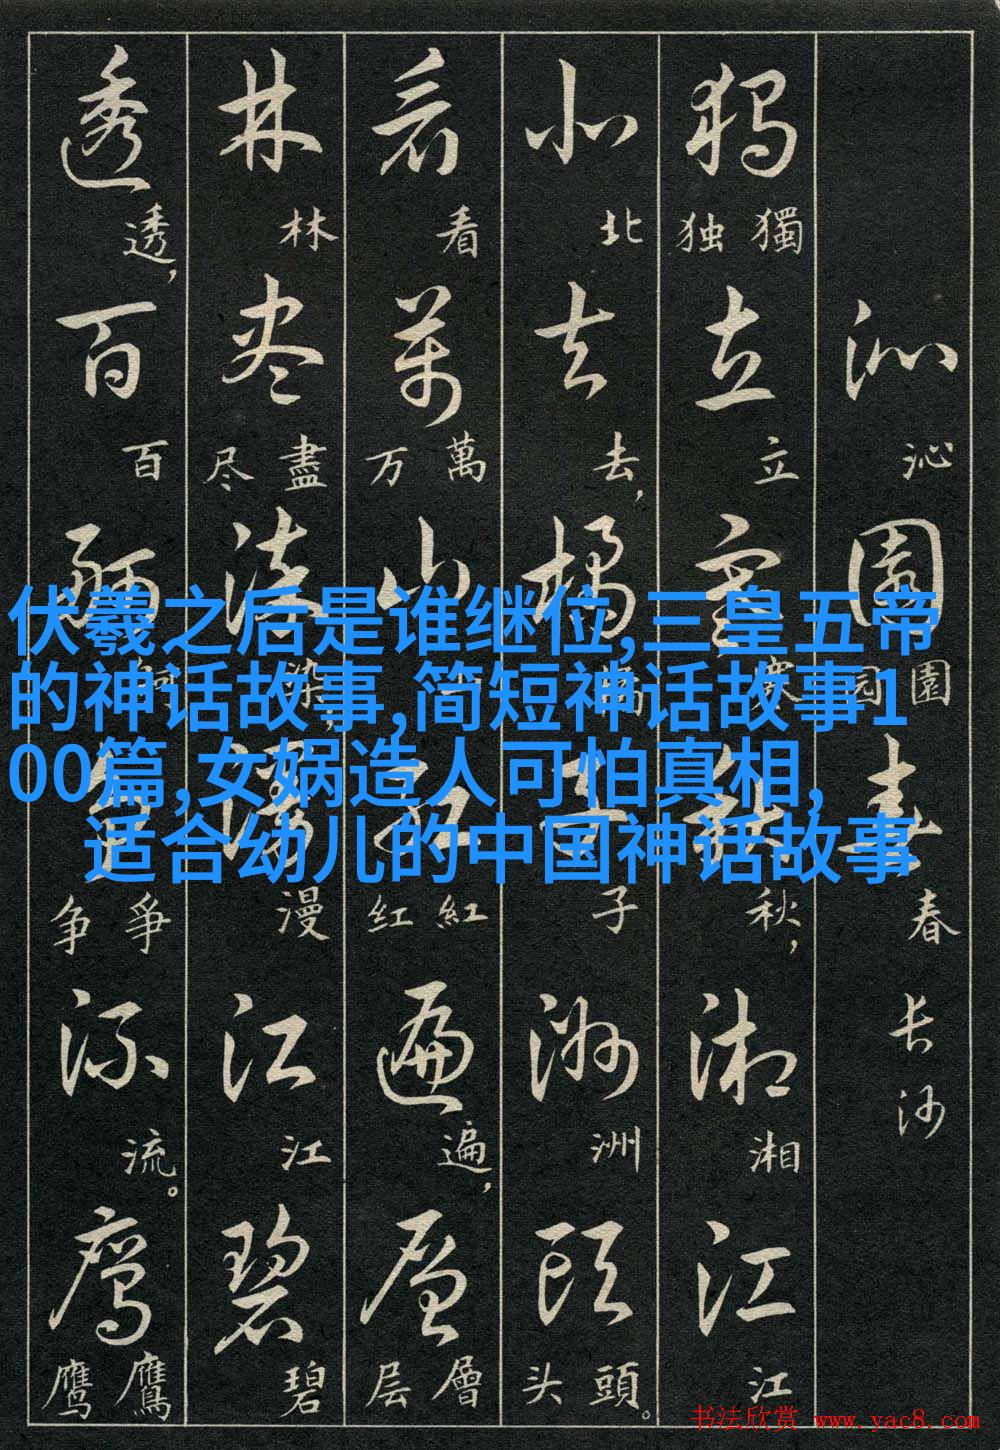 伏羲之后是谁继位,三皇五帝
的神话故事,简短神话故事1
00篇,女娲造人可怕真相,
适合幼儿的中国神话故事
沁沁園园園春春长沙
独独獨立立寒寒秋秋,湘湘江江
北北去去,橘橘子子洲洲头头頭。
看看万万萬山山红红紅遍遍,层层層
林林尽尽盡染染,漫漫江江碧碧
透透,百百舸舸争争爭流流。鹰鹰鷹
书法欣赏 www.yac8.com